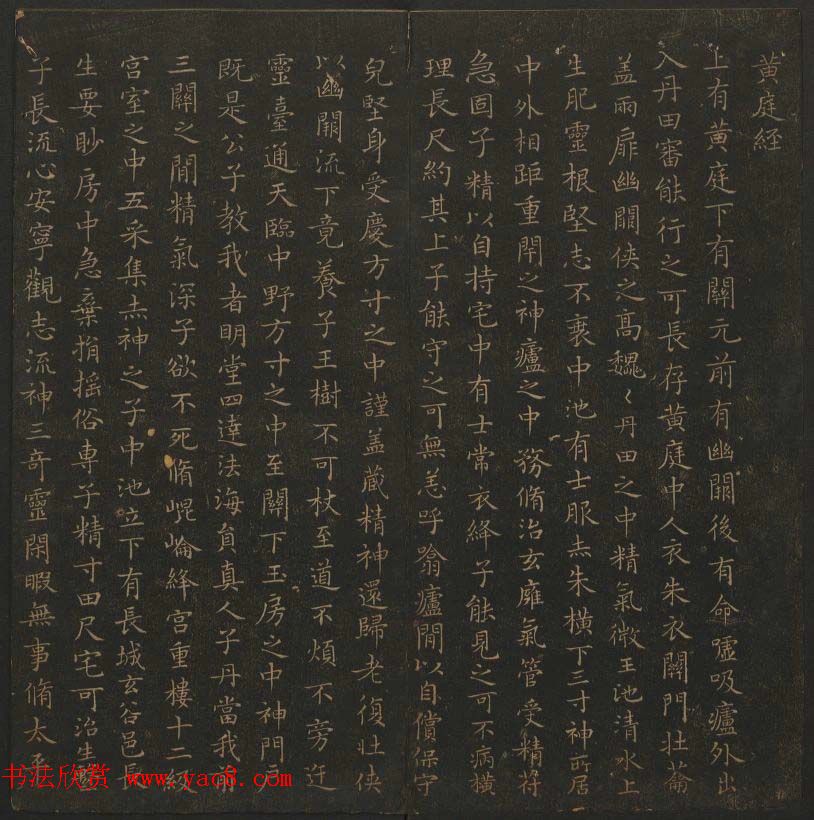 黃庭経
上有黃庭下有關元前有幽闕後有命噓吸廬外出
入丹田審能行之可長存黃庭中人衣朱衣關門壯蘥
盖兩扉幽闕俠之高巍〻丹田之中精氣微玉池清水上
生肥靈根堅志不衰中池有士服赤朱橫下三寸神所居
中外相距重閇之神廬之中務脩治玄廱氣管受精苻
急固子精以自持宅中有士常衣絳子能見之可不病橫
理長尺約其上子能守之可無恙呼翕廬閒以自償保守
皃堅身受慶方寸之中謹盖藏精神還歸老復壯俠
以幽闕流下竟養子玉樹不可杖至道不煩不旁迕
靈臺通天臨中野方寸之中至關下玉房之中神門戶
既是公子教我者明堂四達法海員真人子丹當我前
三關之閒精氣深子欲不死脩崐崘絳宮重樓十二級
宮室之中五采集赤神之子中池立下有長城玄谷邑長
生要眇房中急棄捐搖俗専子精寸田尺宅可治生繫
子長流心安寧觀志流神三奇靈閑暇無事脩太平
书法欣赏 www.yac8.com